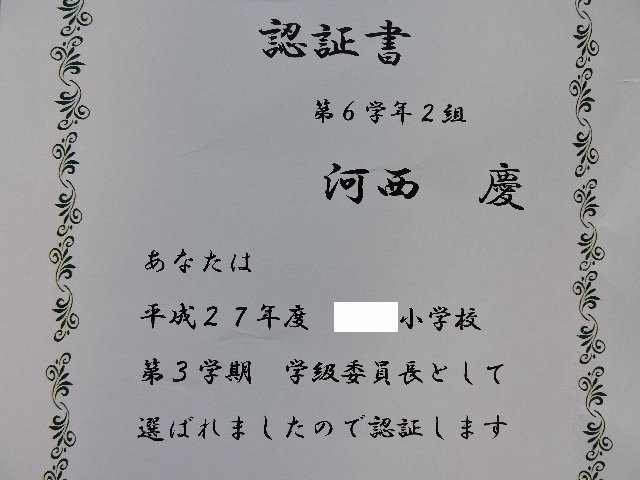 認証書
第6学年2組
河西 慶
あなたは
平成27年度 小学校
第3学期 学級委員長として
選ばれましたので認証します